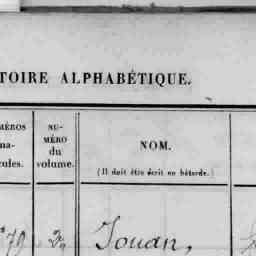 TOIRE ALPHABÉTIQUE.
MÉROS
ma-
cules.
NU-
MÉRO
du
volume.
NOM.
(Il doit être écrit en bâtarde.)
79
Jouan,